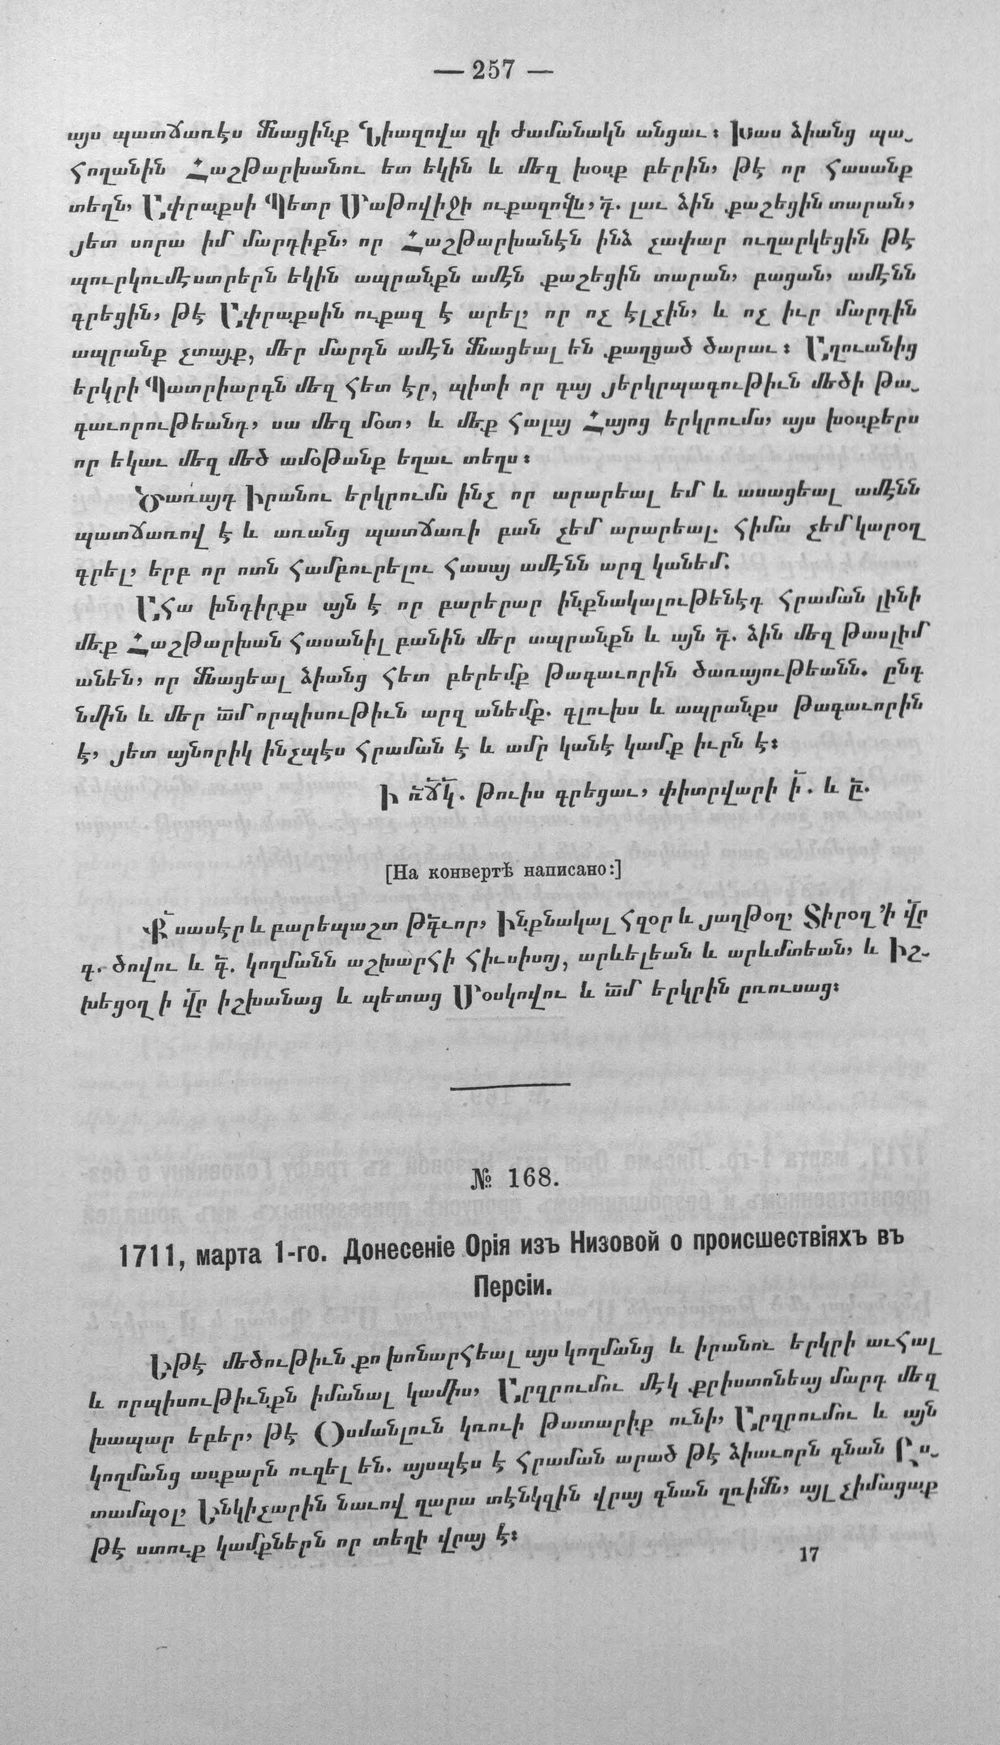 — 257 —
այս պատճառէս մնացինք Նիազովա զի ժամանակն անցաւ։ խաս ձիանց պա֊
հողանին Հաշթարխանու ետ եկին և մեզ խօսք բերին, թէ որ հասանք
տեղն, Ափրաքսի Պետր Մաթովիջի ուքազովն, դ. լաւ ձին քաշեցին տարան,
յետ սորա իմ մարդիքն, որ Հաշթարխանէն ինձ չափար ուղարկեցին թէ
պուրկումէստրերն եկին ապրանքն ամէն քաշեցին տարան, բացան, ամէնն
գրեցին, թէ Ափրաքսին ուքազ է արել, որ ոչ էլչին, և ոչ իւր մարդին
ապրանք չտայք, մեր մարդն ամէն մնացեալ են քաղցած ծարաւ։ Աղուանից
երկրի Պատրիարդն մեզ հետ էր, պիտի որ գայ յերկրպագութիւն մեծի թա֊
գաւորութեանդ, սա մեզ մօտ, և մեք հալայ Հայոց երկրումս, այս խօսքերս
որ եկաւ մեզ մեծ ամօթանք եղաւ տեղս։
Ծառայդ Իրանու երկրումս ինչ որ արարեալ եմ և ասացեալ ամէնն
պատճառով է և առանց պատճառի բան չեմ արարեալ. հիմա չեմ կարօղ
գրել, երբ որ ոտն համբուրելու հասայ ամէնն արզ կանեմ.
Ահա խնդիրքս այն է որ բարերար ինքնակալութենէդ հրաման լինի
մեք Հաշթարխան հասանիլ բանին մեր ապրանքն և այն դ. ձին մեզ թասլիմ
անեն, որ մնացեալ ձիանց հետ բերեմք թագաւորին ծառայութեանն. ընդ
նմին և մեր ամ որպիսութիւն արզ անեմք. գլուխս և ապրանքս թագաւորին
է, յետ այնորիկ ինչպէս հրաման է և ամր կանէ կամք իւրն է։
Ի ռճկ. թուիս գրեցաւ, փիտրվարի ի. և ը.
[На конвертѣ написано:]
Քսասէր և բարեպաշտ թգւոր, Ինքնակալ հզօր և յաղթօղ, Տիրօղ ՚ի վր
գ. ծովու և դ. կողմանն աշխարհի հիւսիսոյ, արևելեան և արևմտեան, և Իշ֊
խեցօղ ի վր իշխանաց և պետաց Մօսկովու և ամ երկրին ըռուսաց։
№ 168.
1711, марта 1-го. Донесеніе Орія изъ Низовой о происшествіяхъ въ
Персіи.
Եթէ մեծութիւն քո խոնարհեալ այս կողմանց և իրանու երկրի աւհալ
և որպիսութիւնքն իմանալ կամիս, Արզրումու մէկ քրիստոնեայ մարդ մեզ
խապար երեր, թէ Օսմանլուն կռուի թատարիք ունի, Արզրումու և այն
կողմանց ասքարն ուզել են. այսպէս է հրաման արած թէ ձիաւորն գնան Ըս֊
տամպօլ, Ենկիչարին նաւով ղարա տէնկզին վրայ գնան ղռիմն, այլ չիմացաք
թէ ստուք կամքներն որ տեղի վրայ է։
17